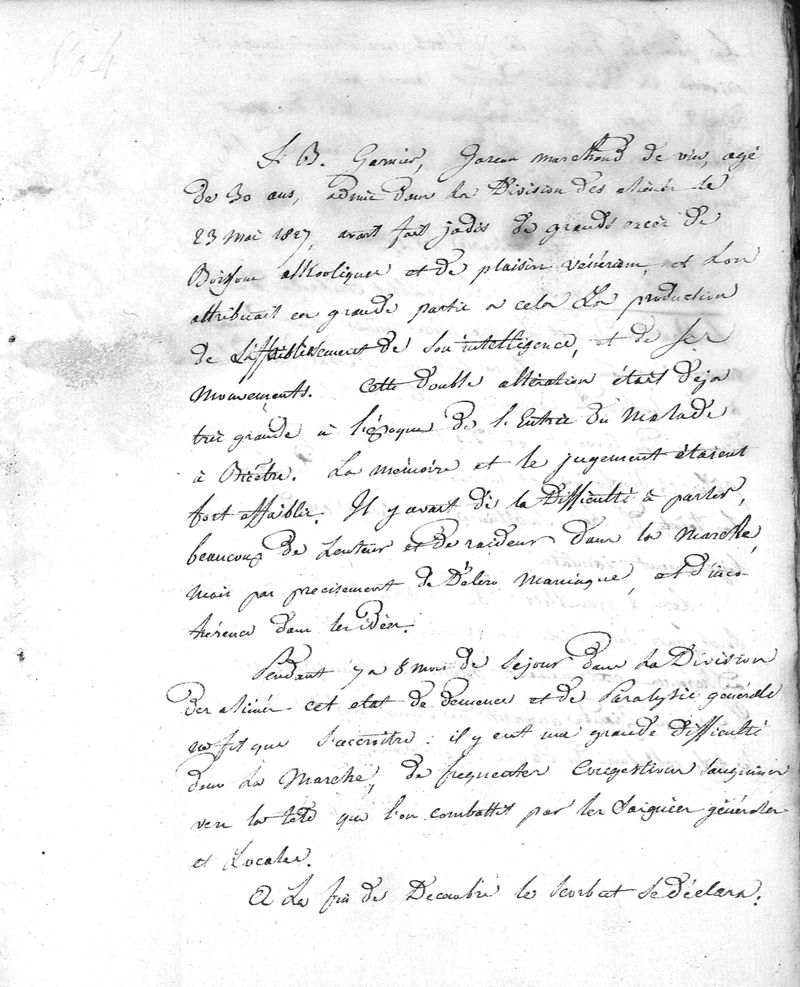 804
J. B. Garnier, Garcon marchand de vin, agé
de 30 ans, admis dans la Division des aliénés le
23 Mai 1827, avait fait jadis de grands excès de
Boissons alkooliques et de plaisirs vénériens, et l'on
attribuait en grande partie a cela la production
de l'affaiblissement de son intelligence, et de ses
mouvements. Cette double altération était deja
très grande à l'époque de l'Entrée du Malade
à Bicêtre. La mémoire et le jugement étaient
fort affaiblis. Il y avait de la Difficulté à parler,
beaucoup de Lenteur et de raideur dans la Marche,
mais pas precisement de Délire maniaque, et d'inco-
hérence dans les idées.
Pendant 7 a 8 mois de séjour dans la Division
des aliénés cet etat de demence et de Paralysie générale
ne fit que s'accroitre : il y eut une grande difficulté
dans la Marche, de frequentes congestions sanguines
vers la tete que l'on combattit par les Saignées générales
et Locales.
A la fin de Decembre le scorbut se déclara.